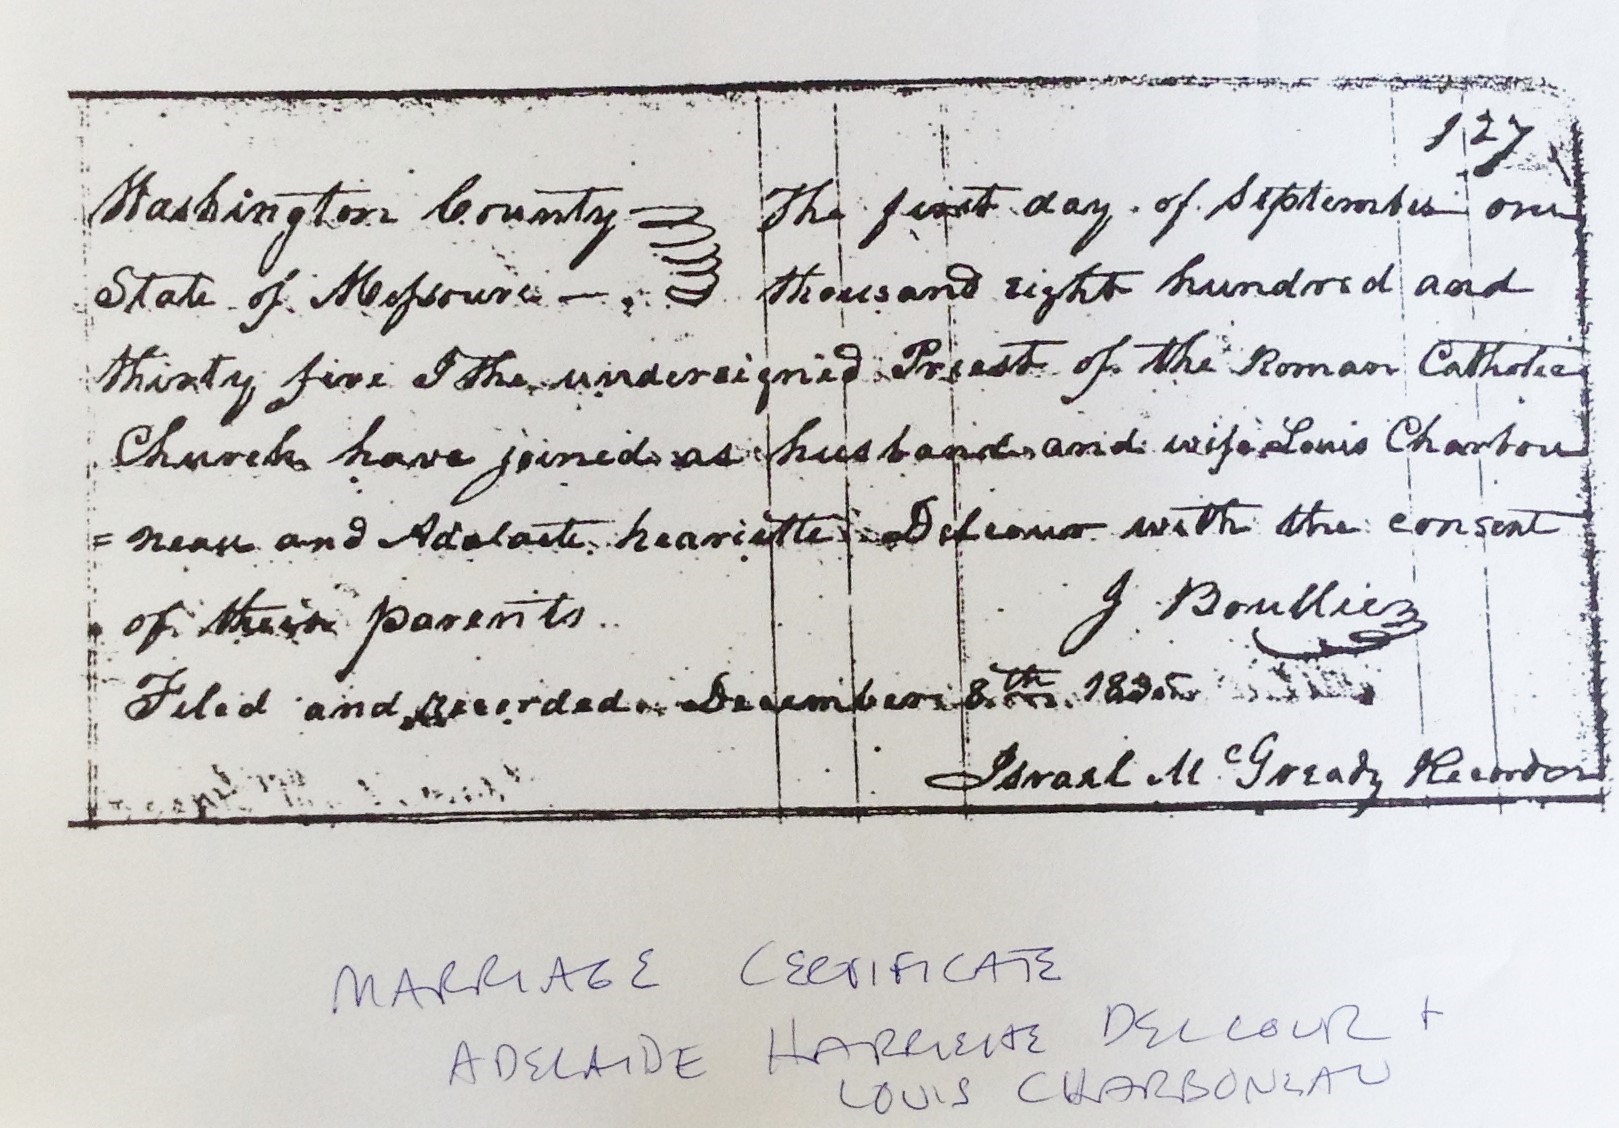 127
Washington County The first day of September one
State of Messouri — thousand eight hundred and
thirty five I the undersigned Preest of the Roman Catholic
Church have joined as husband and wife Louis Charbou
= neau and Adalaite heariette Delcour with the consent
of their parents.
J Boullier
Filed and recorded December 8th 1835
Israel McGready Recorder
MARRIAGE CERTIFICATE
ADELAIDE HARRIETTE DELCOUR +
LOUIS CHARBONEAU